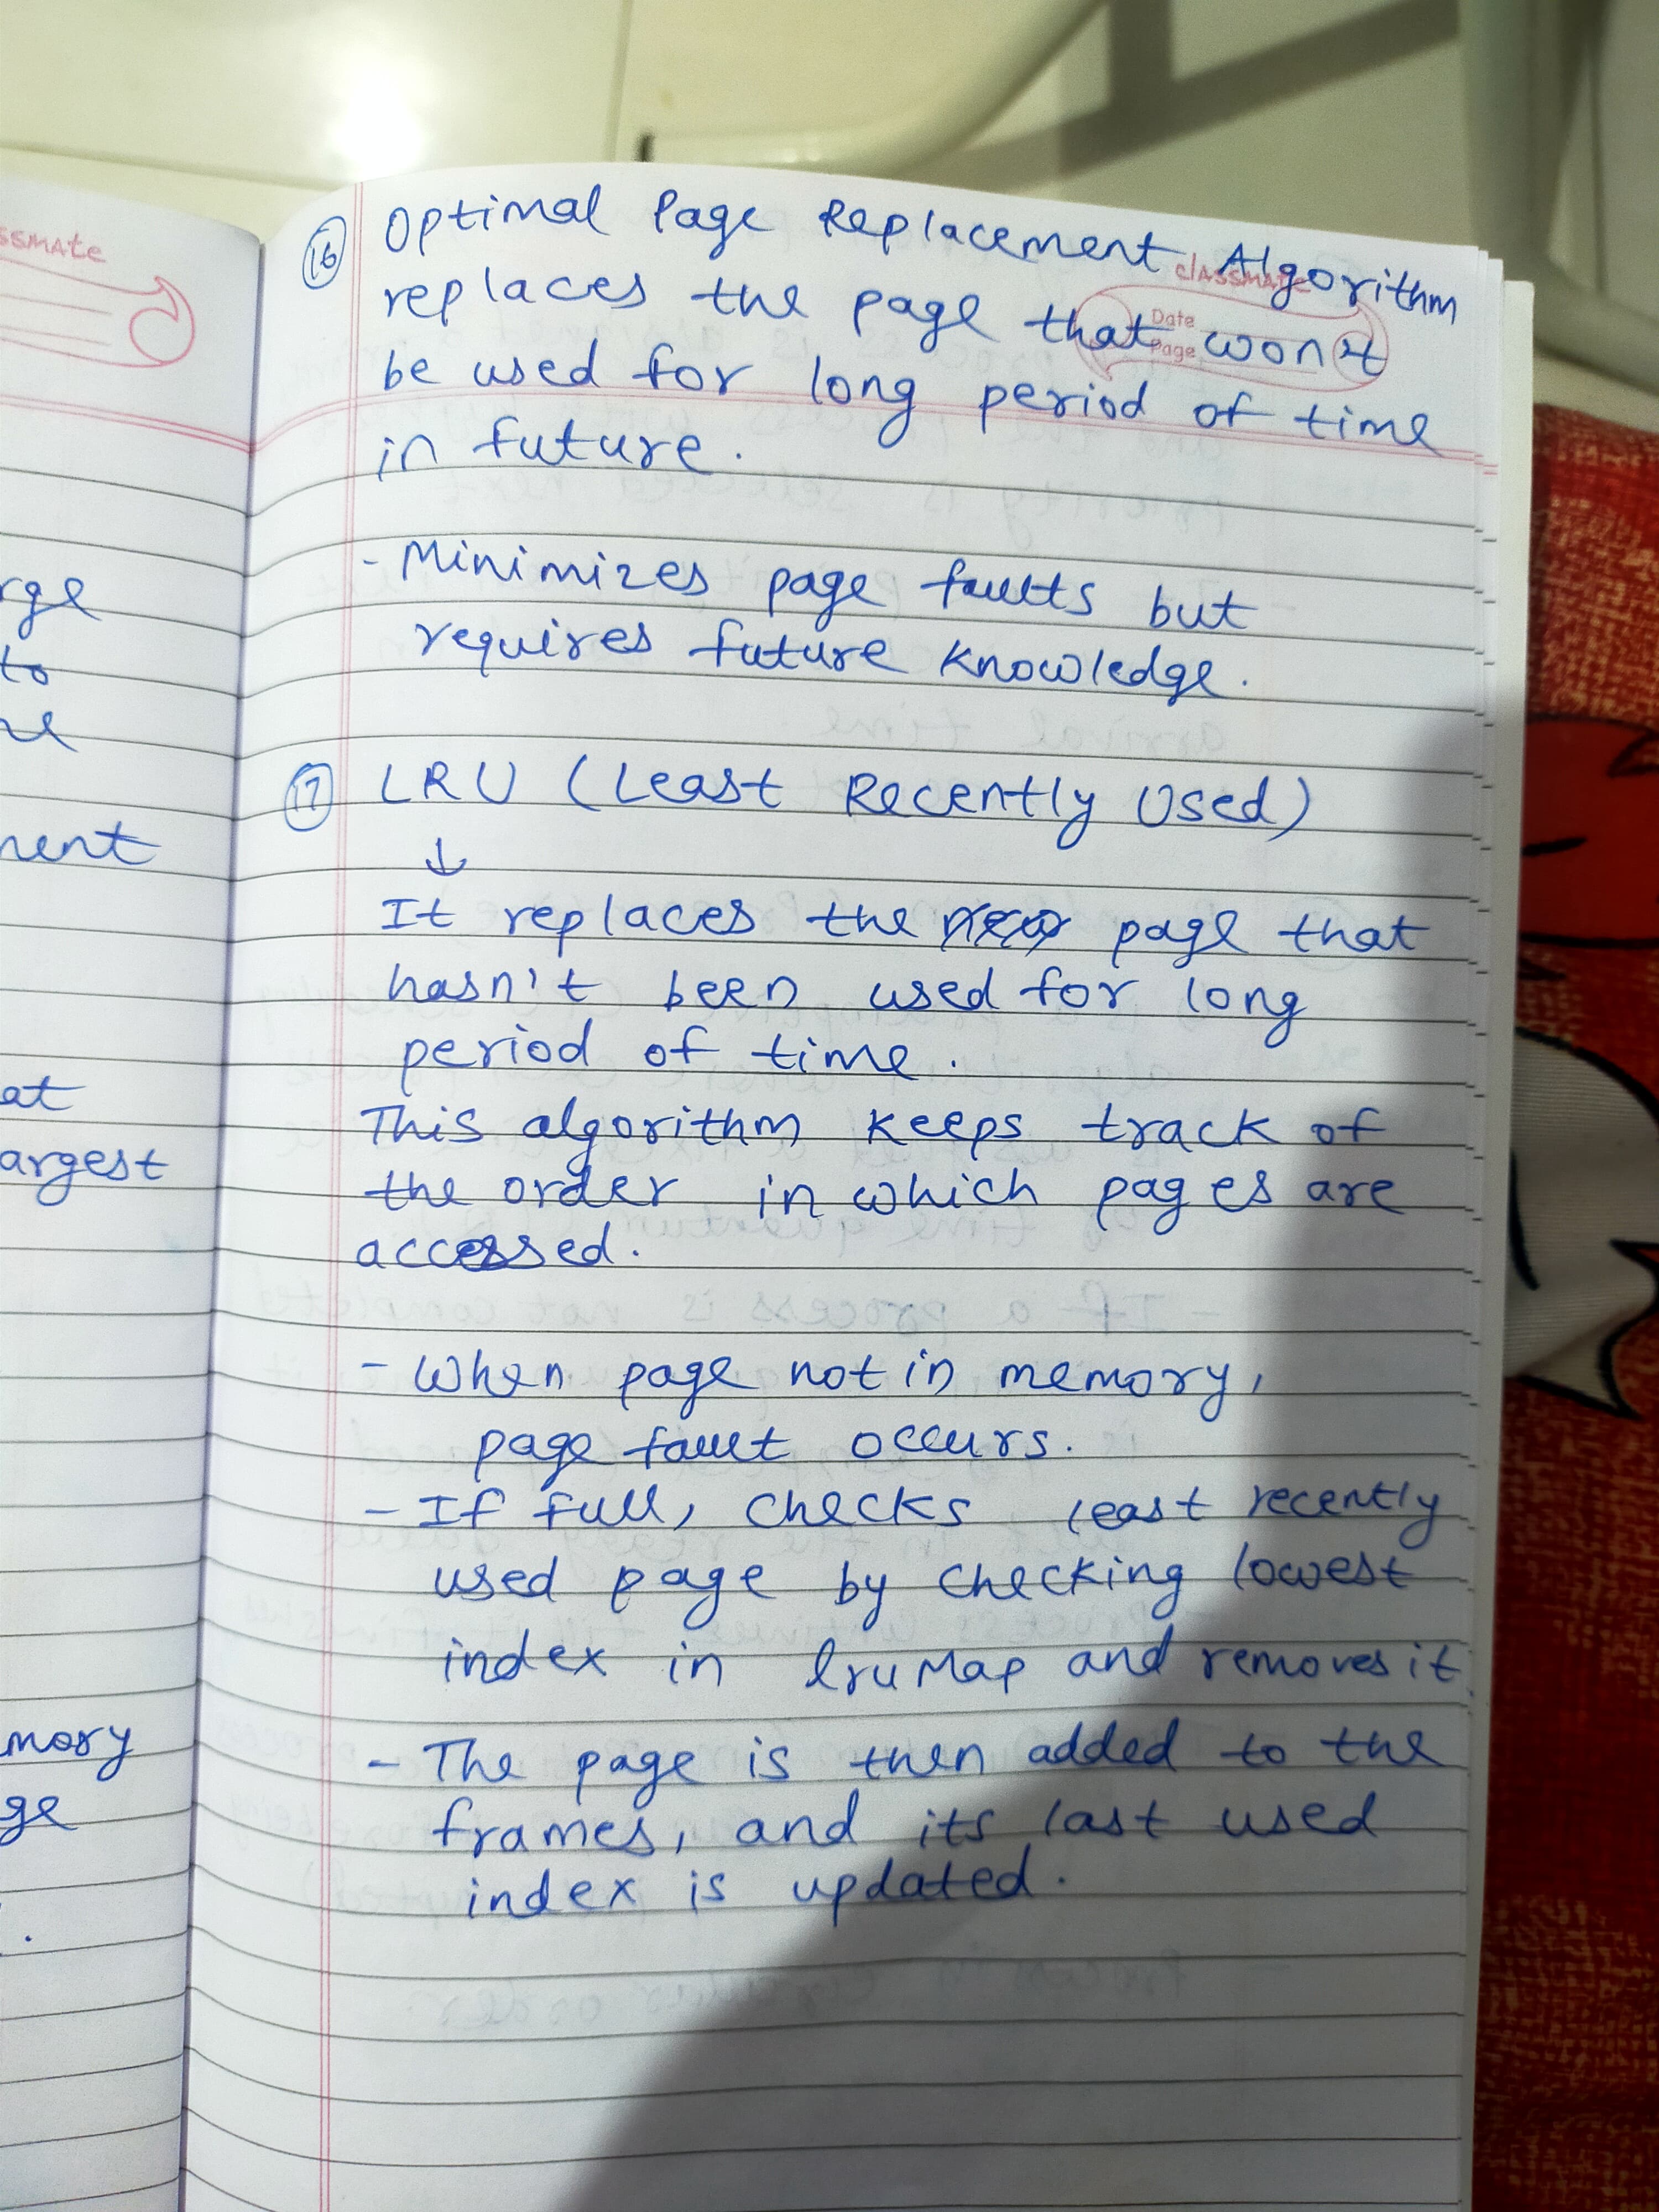 ssmate
rge
to
ne
ment
at
argest
mory
ge
.
classmate
Date
Page
16 Optimal Page Replacement Algorithm
replaces the page that won't
be used for long period of time
in future.
- Minimizes page faults but
requires future knowledge.
17 LRU (Least Recently Used)
↓
It replaces the page that
hasn't been used for long
period of time.
This algorithm keeps track of
the order in which pages are
accessed.
- When page not in memory,
page fault occurs.
- If full, checks least recently
used page by checking lowest
index in lruMap and removes it
- The page is then added to the
frames, and its last used
index is updated.